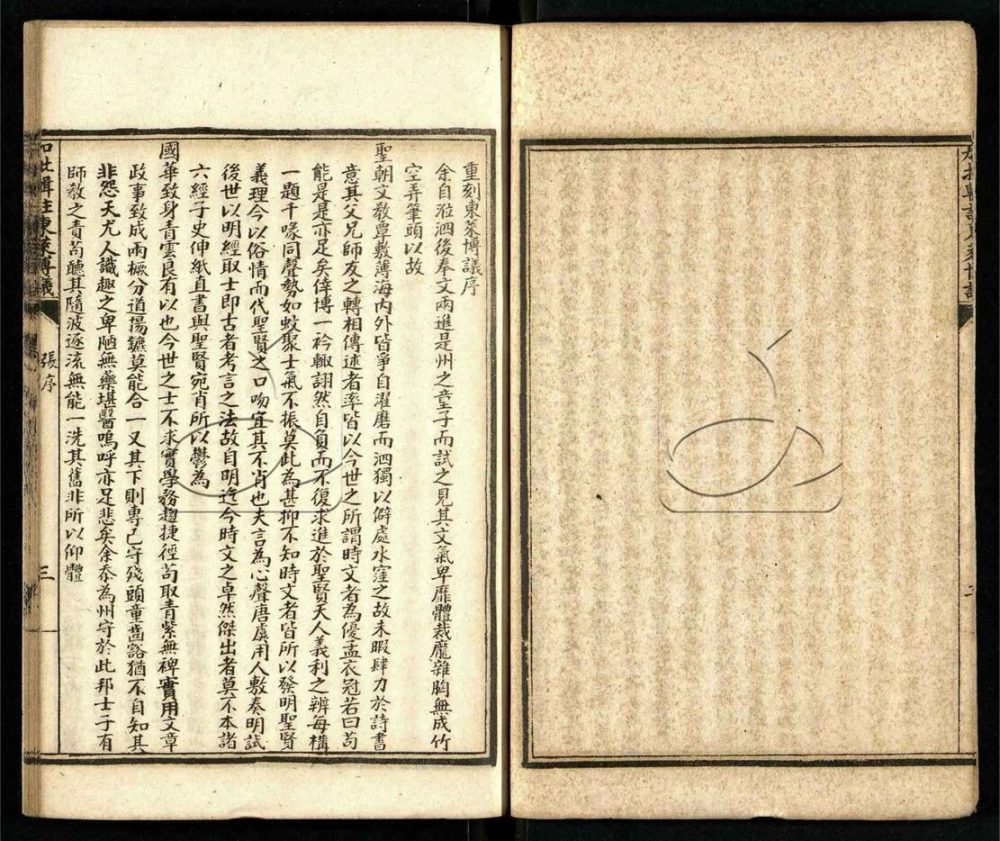 重刻東萊博議序
余自涖泗後奉文兩進是州之童子而試之見其文氣卑靡體裁龐雜胸無成竹
空弄筆頭以故
聖朝文教覃敷薄海內外皆爭自濯磨而泗獨以僻處水窪之故未暇肆力於詩書
意其父兄師友之轉相傳述者率皆以今世之所謂時文者為優孟衣冠若曰苟
能是是亦足矣倖博一衿輙詡然自負而不復求進於聖賢天人義利之辨每構
一題千喙同聲勢如蚊聚士氣不振莫此為甚抑不知時文者皆所以發明聖賢
義理今以俗情而代聖賢之口吻宜其不肖也夫言為心聲唐虞用人敷奏明試
後世以明經取士即古者考言之法故自明迄今時文之卓然傑出者莫不本諸
六經子史伸紙直書與聖賢宛肖所以鬱為
國華致身青雲良有以也今世之士不求實學務趨捷徑苟取青紫無裨實用文章
政事致成兩橛分道揚鑣莫能合一又其下則專己守殘頭童齒豁猶不自知其
非怨天尤人識趣之卑陋無藥堪醫嗚呼亦足悲矣余忝為州守於此邦士子有
師教之責苟聽其隨波逐流無能一洗其舊非所以仰體
東萊博議
張序
三